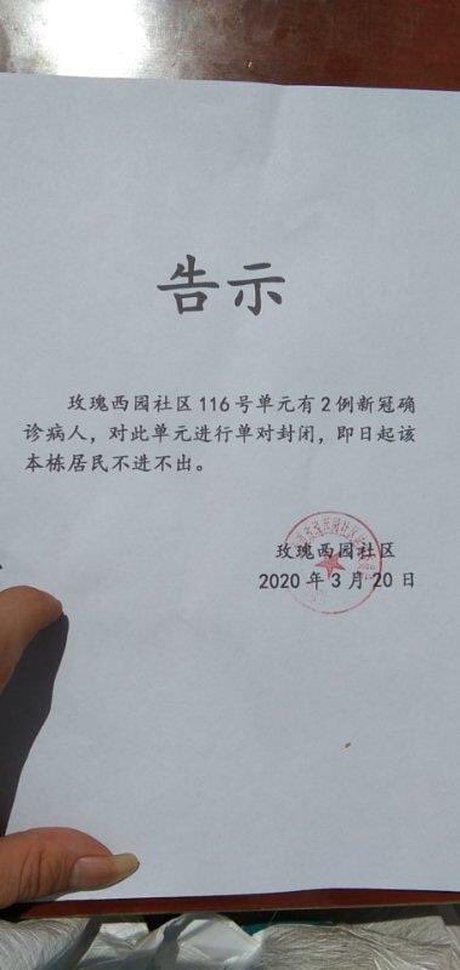 告示
玫瑰西园社区116号单元有2例新冠确
诊病人，对此单元进行单对封闭，即日起该
本栋居民不进不出。
玫瑰西园社区
2020年3月20日